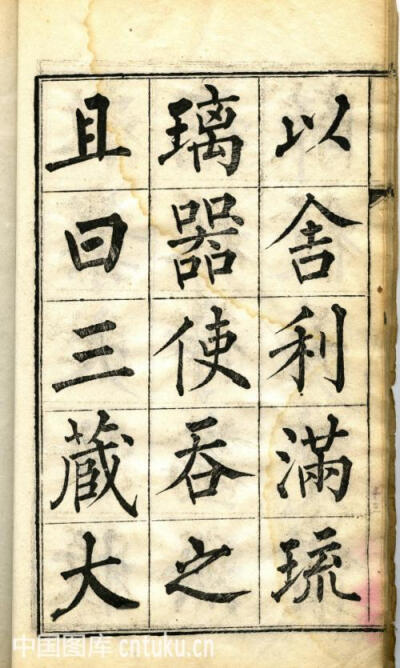 以舍利滿琉
璃器使吞之
且曰三藏大
中国图库 cntuku.cn